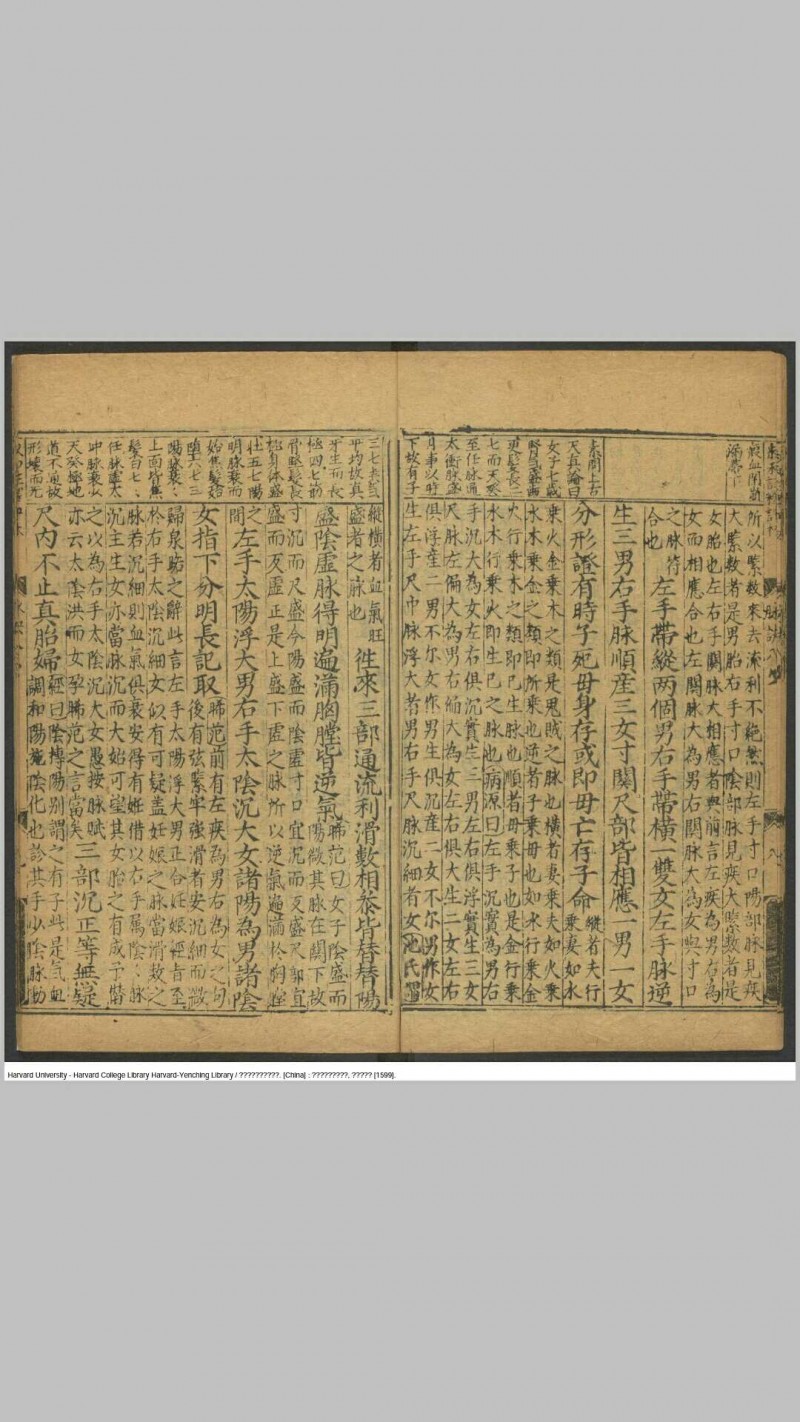 素問上古
天真論曰
女子七歲
腎氣盛齒
更髮長二
七而天癸
至任脉通
太衝脉盛
月事以時
下故有子
所以緊數來去流利不絕然則左手寸口陽部脉見疾
大緊數者是男胎右手寸口陰部脉見疾大緊數者是
女胎也左右手關脉大相應者與前言左疾為男右為
女而相應合也左關脉大為男右關脉大為女與寸口
之脉符
合也
左手帶縱两個男右手帶橫一雙女左手脉逆
生三男右手脉順産三女寸関尺部皆相應一男一女
分形證有時子死毋身存或即毋亡存子命
縱者夫行
乗妻如水
乗火金乗木之類是鬼賊之脉也橫者妻乗夫如火乗
水木乗金之類即所乗也逆者子乗毋也如水行乗金
火行乗木之類即已生脉也順者毋乗子也是金行乗
水木行乗火即生已之脉也病源曰左手沉實為男右
手沉大為女左右俱沉實生三男左右俱浮實生三女
尺脉左偏大為男右偏大為女左右俱大生二女左右
俱浮産二男不尔女作男生俱沉産二女不尔男作女
生左手尺巾脉浮大者男右手尺脉沉細者女
三七腎氣
平均故真
牙生而長
極四七筋
骨堅髮長
極身体盛
壯五七陽
明脉衰而
始焦髮始
墮六七三
陽脉衰〻
上面皆焦
髮白七〻
任脉虛太
冲脉衰少
天癸竭地
道不通故
形壞而无
縱橫者血氣旺
盛者之脉也
徃來三部通流利滑數相叅皆替替陽
盛陰虛脉得明遍滿胸膛皆逆氣
㬰范曰女子陰盛而
陽微其脉在関下故
寸沉而尺盛今陽盛而陰虛寸口宜沉而反盛尺部宜
盛而反虛正是上盛下虛之脉所以逆氣遍滿於胸膛
之
間
左手太陽浮大男右手太陰沉大女諸陽為男諸陰
女指下分明長記取
㬰范前有左疾為男右為女之句
後有弦緊牢强滑者安沉細而微
歸泉路之辭此言左手太陽浮大男正合妊娠經旨至
於右手太陰沉細女似有可疑盖妊娠之脉當滑數之
脉若沉細則血氣俱衰安得有妊借以右手屬陰〻脉
沉主生女亦當脉沉而大始可定其女胎之有成予㬱
之以為右手太陰沉大女愚按脉賦
亦云太陰洪而女孕㬰范之言當矣
三部沉正等無疑
尺內不止真胎婦
經曰陰摶陽別謂之有子此是氣血
調和陽施陰化也診其手少陰脉動
Harvard University - Harvard College Library Harvard-Yenching Library / ??????????. [China] : ?????????, ????? [1599].